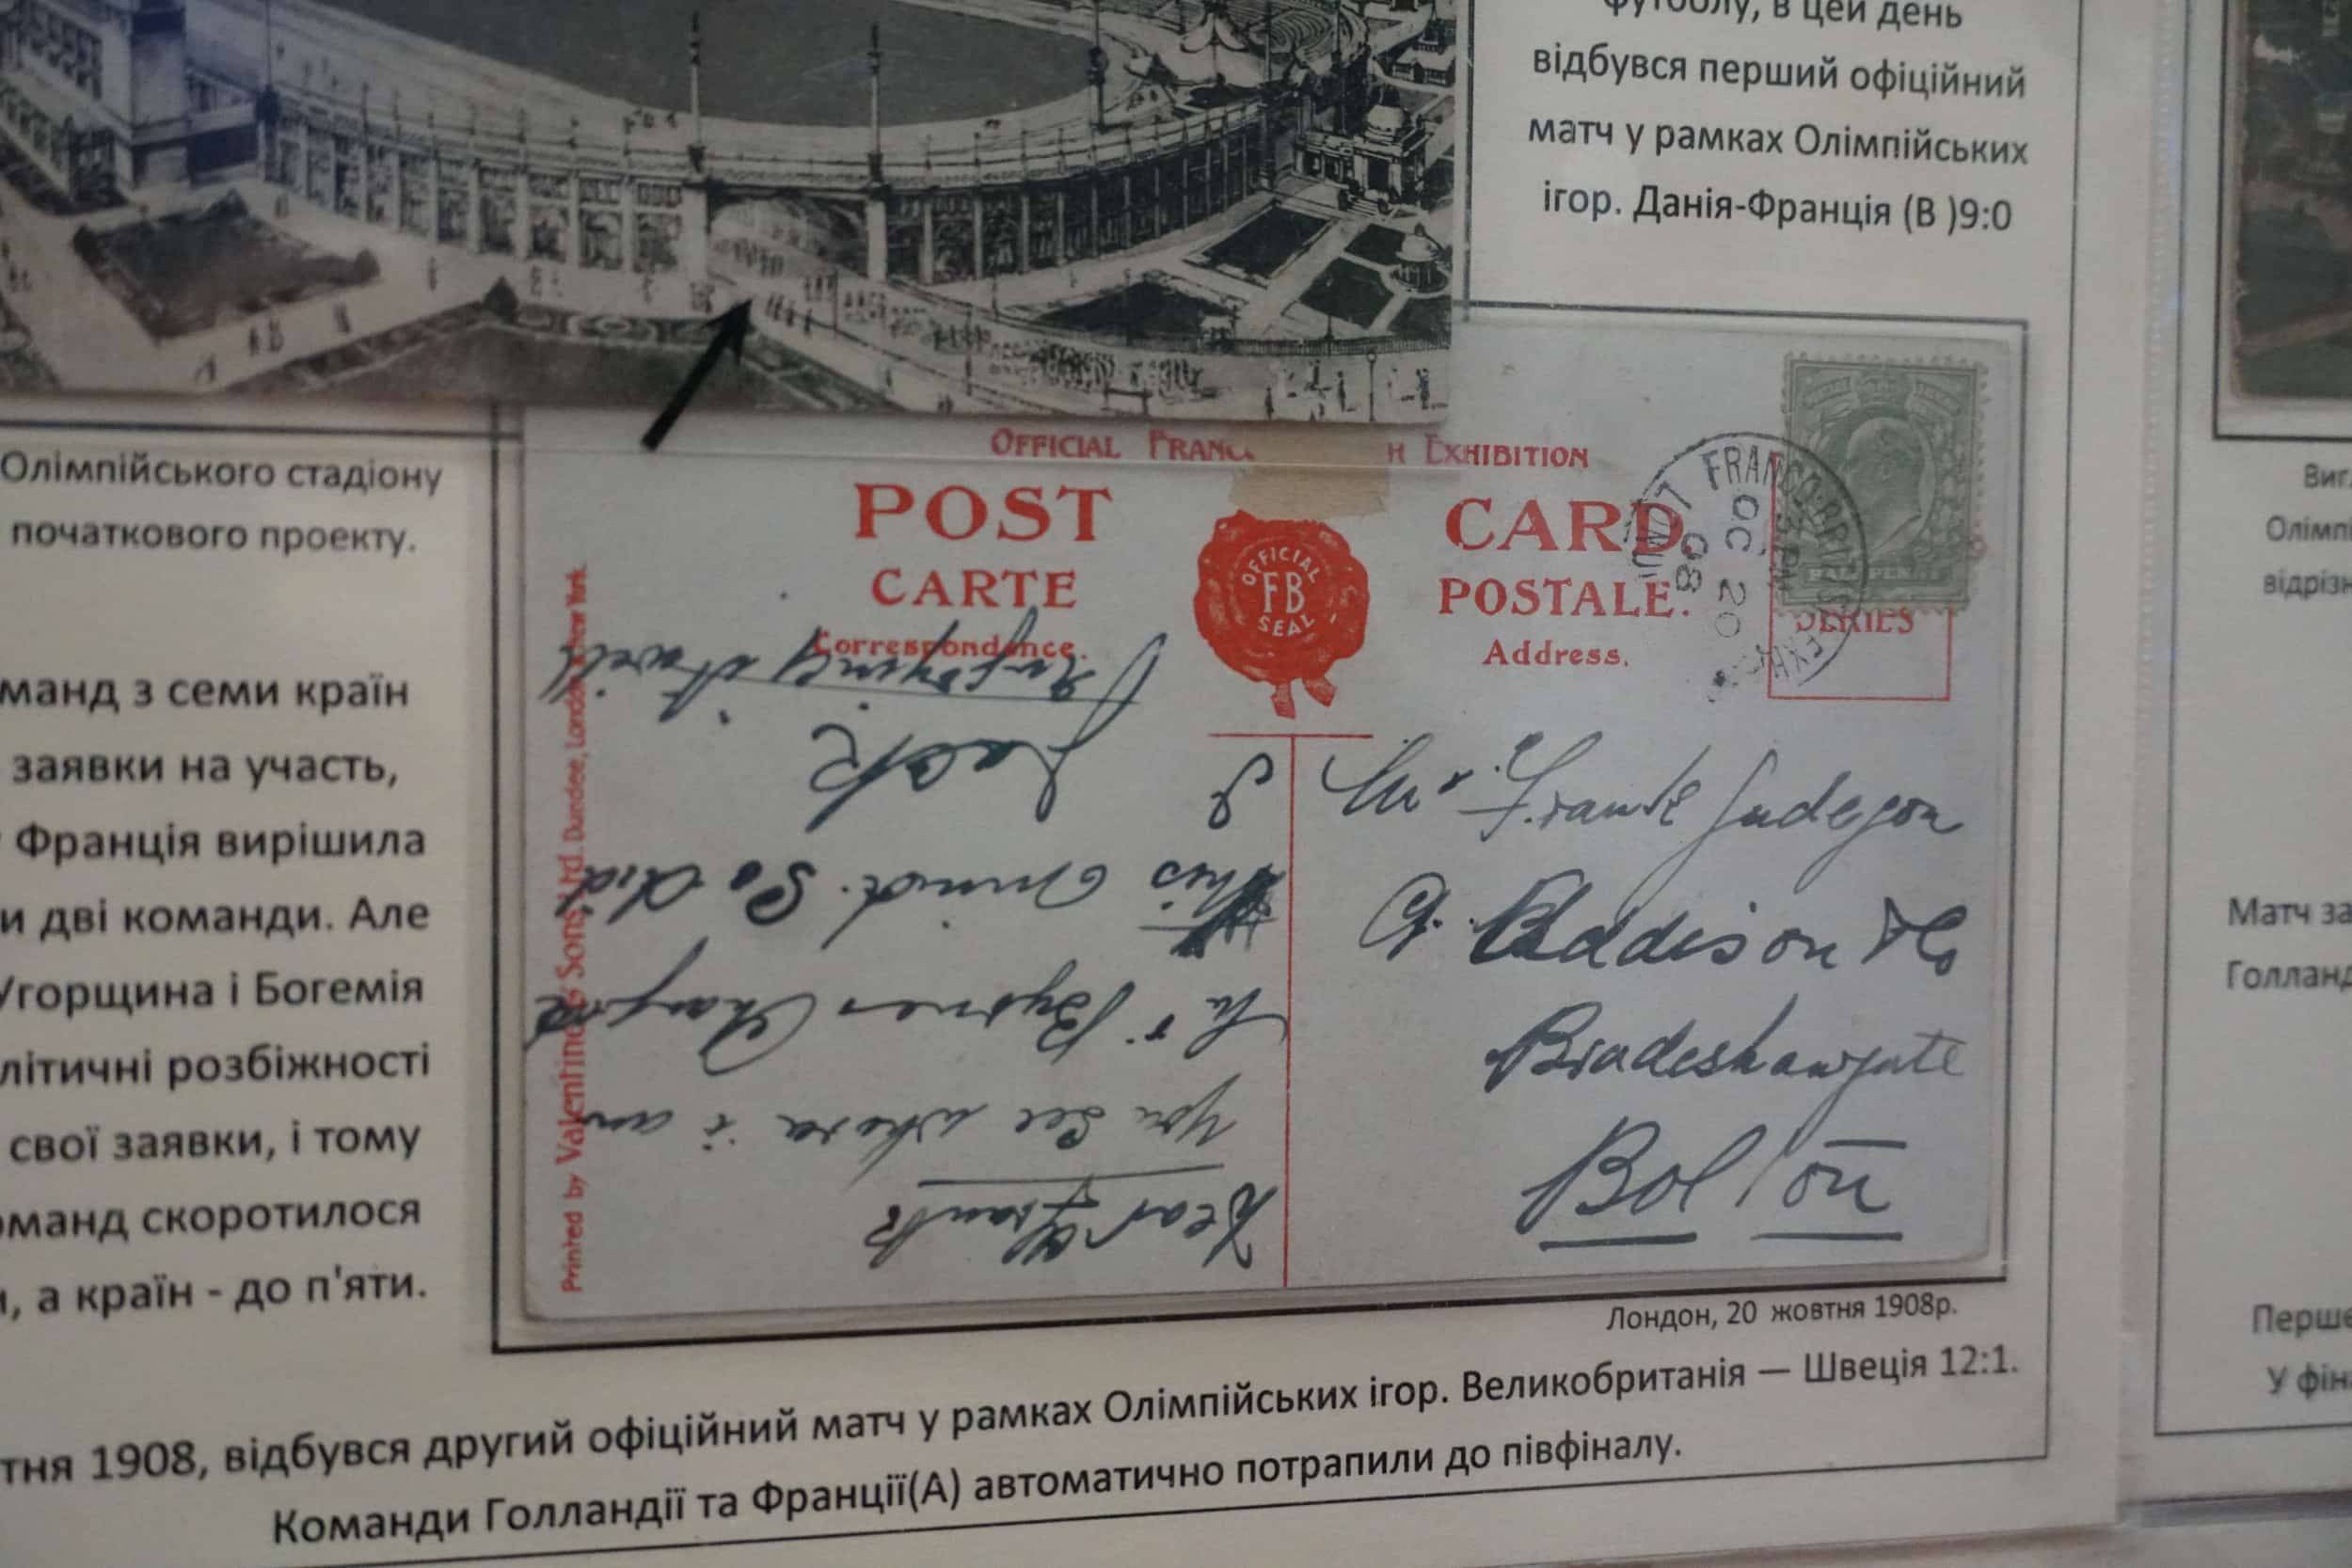 футболу, в цей день
відбувся перший офіційний
матч у рамках Олімпійських
ігор. Данія-Франція (В )9:0
Олімпійського стадіону
початкового проекту.
манд з семи країн
заявки на участь,
Франція вирішила
и дві команди. Але
Угорщина і Богемія
літичні розбіжності
свої заявки, і тому
оманд скоротилося
и, а країн - до п'яти.
OFFICIAL FRANC H EXHIBITION
POST CARD
CARTE POSTALE.
Correspondence. Address.
OFFICIAL
FB
SEAL
FRANCO-BRITISH EXHB
3 PM
OC 20
08
HALFPENNY
SERIES
Printed by Valentine & Sons, Ltd. Dundee, London & New York.
Dear Frank
you see where i am
Mr Byrnes Changed
his mind. So did
I
Jack
Enjoying itself
Mr Frank
G. Addison & Co
Bradeshawgate
Bolton
Лондон, 20 жовтня 1908р.
тня 1908, відбувся другий офіційний матч у рамках Олімпійських ігор. Великобританія — Швеція 12:1.
Команди Голландії та Франції(А) автоматично потрапили до півфіналу.
Виг
Олімпі
відрізн
Матч за
Голланд
Перше
У фін